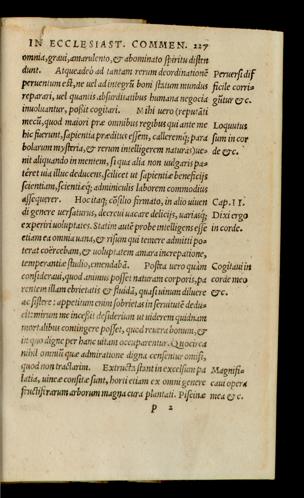 IN ECCLESIAST. COMMEN. 227
omnia, graui, amarulento, & abominato spiritu disten
dunt. Atque adeò ad tantam rerum deordinationē
peruentum est, ne uel ad integrū boni statum mundus
reparari, uel quantis absurditatibus humana negocia
inuoluantur, possit cogitari. Mihi uero (reputāti
mecū, quod maiori præ omnibus regibus qui ante me
hic fuerunt, sapientia præditus essem, calleremq; para
bolarum mysteria, & rerum intelligerem naturas) ue-
nit aliquando in mentem, si qua alia non uulgaris pa-
teret uia illuc deducens. scilicet ut sapientiæ beneficijs
scientiam, scientiæq; adminiculis laborem commodius
assequerer. Hoc itaq; cōsilio firmato, in alio uiuen
di genere uersaturus, decreui uacare delicijs, uariasq;
experiri uoluptates. Statim autē probe intelligens esse
etiam ea omnia uana, & risum qui temere admitti po-
terat coërcebam, & uoluptatem amara increpatione,
temperantiæ studio, emendabā. Postea uero quàm
consideraui, quod animus posset naturam corporis, pa
rentem illam ebrietatis & fluidā, quasi uinum diluere
ac sistere: appetitum enim sobrietas in seruitutē dedu-
cit: mirum me incessit desiderium ut uiderem quidnam
mortalibus contingere posset, quod reuera bonum, &
in quo digne per hanc uitam occuparentur. Quocirca
nihil omniū quæ admiratione digna censentur omisi,
quod non tractarim. Extructa stant in excelsum pa
latia, uineæ consitæ sunt, horti etiam ex omni genere
fructiferarum arborum magna cura plantati. Piscinæ
p 2
Peruersi dif
ficile corri-
gūtur &c.
Loquutus
sum in cor
de &c.
Cap. II.
Dixi ergo
in corde.
Cogitaui in
corde meo
&c.
Magnifi-
caui opera
mea &c.